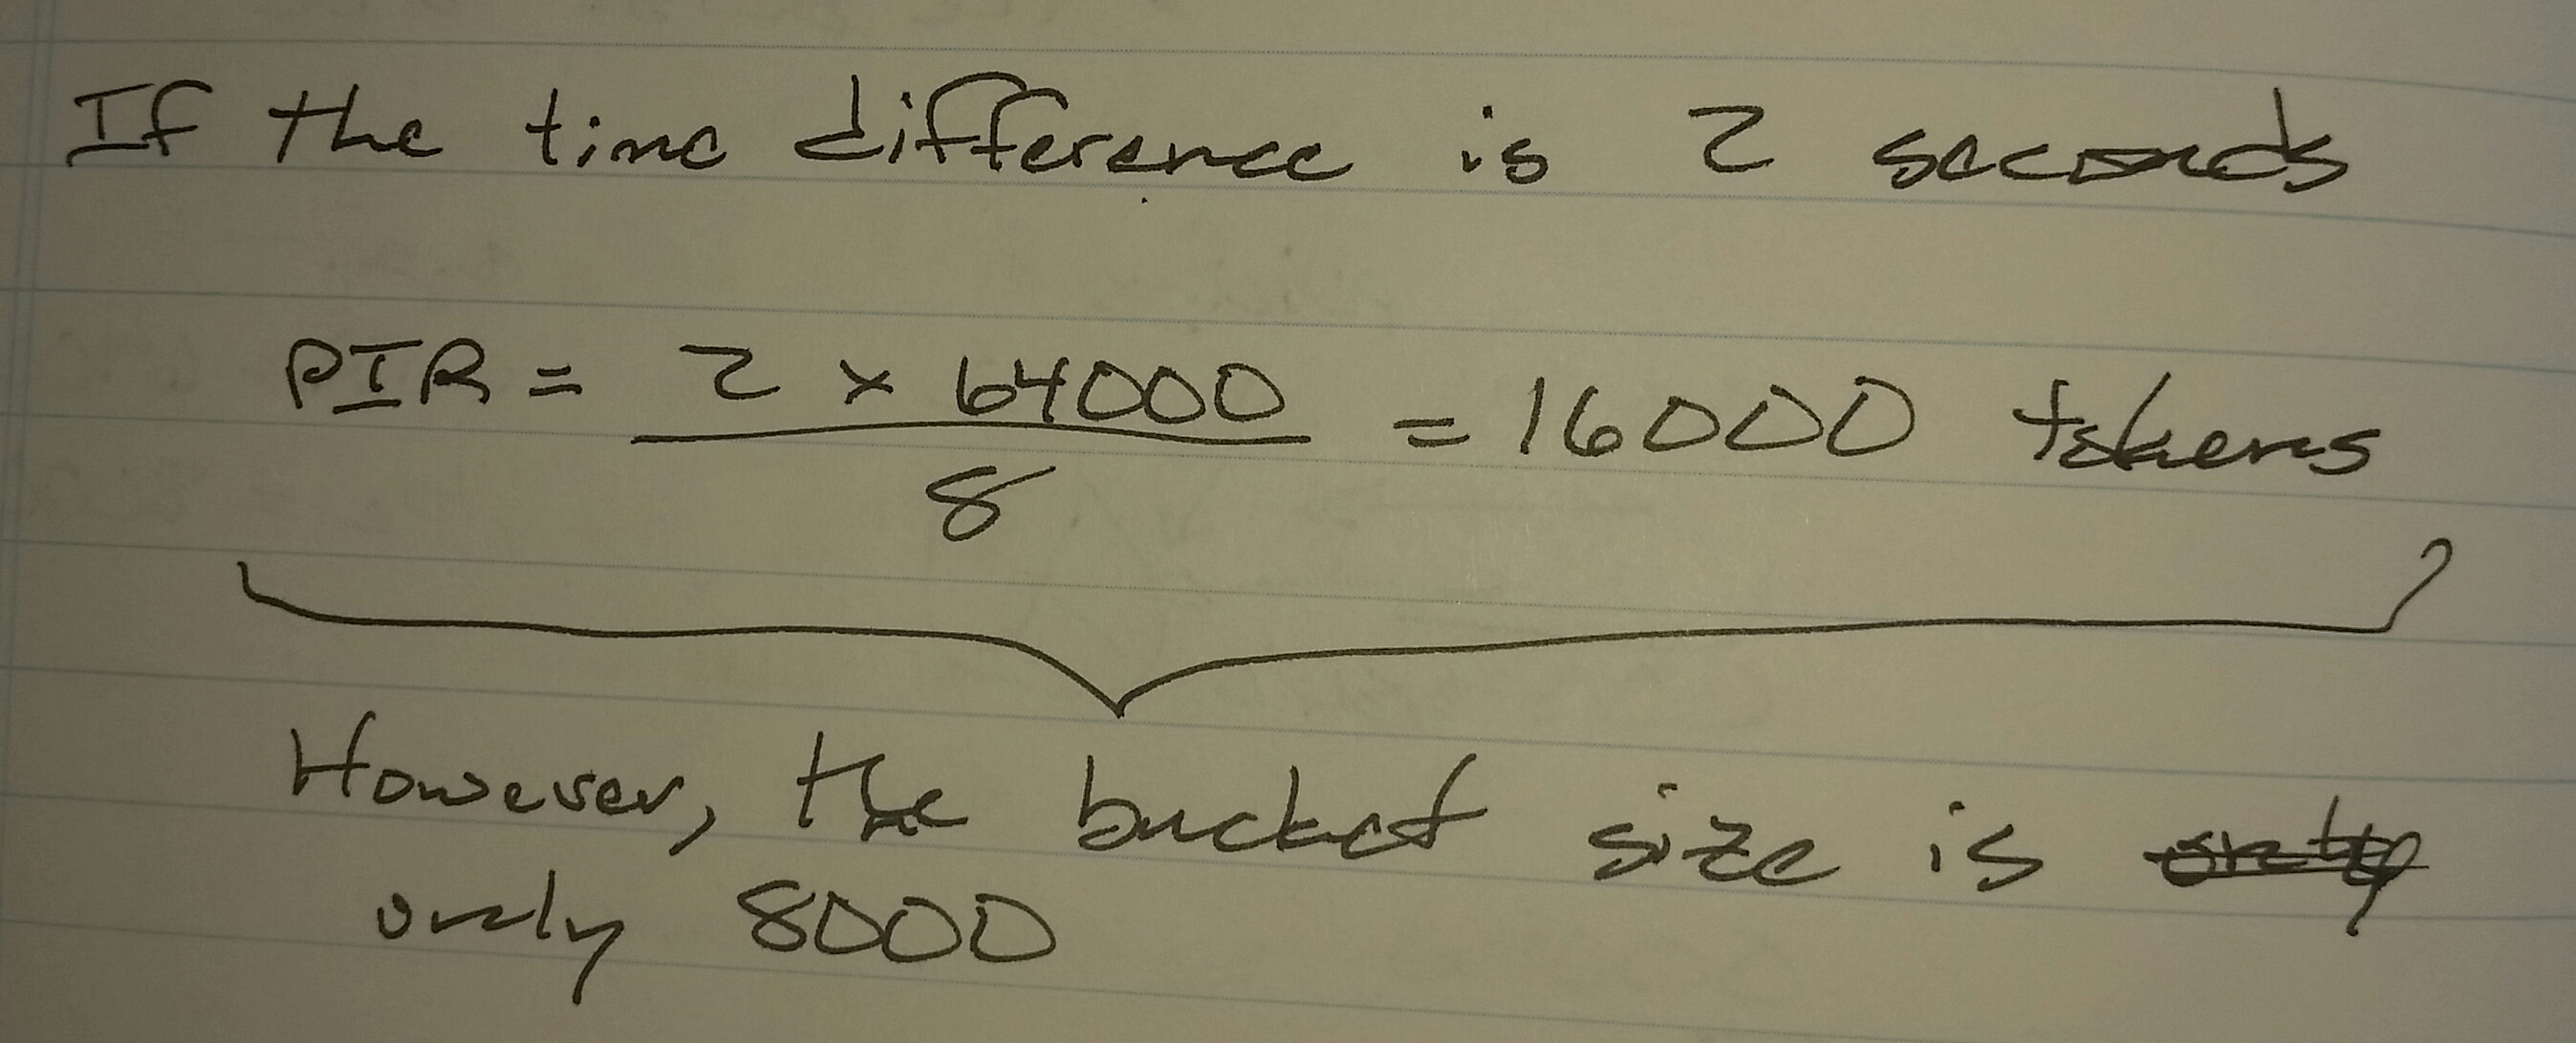 If the time difference is 2 seconds
PIR = 2 x 64000 / 8 = 16000 tokens
However, the bucket size is only
only 8000